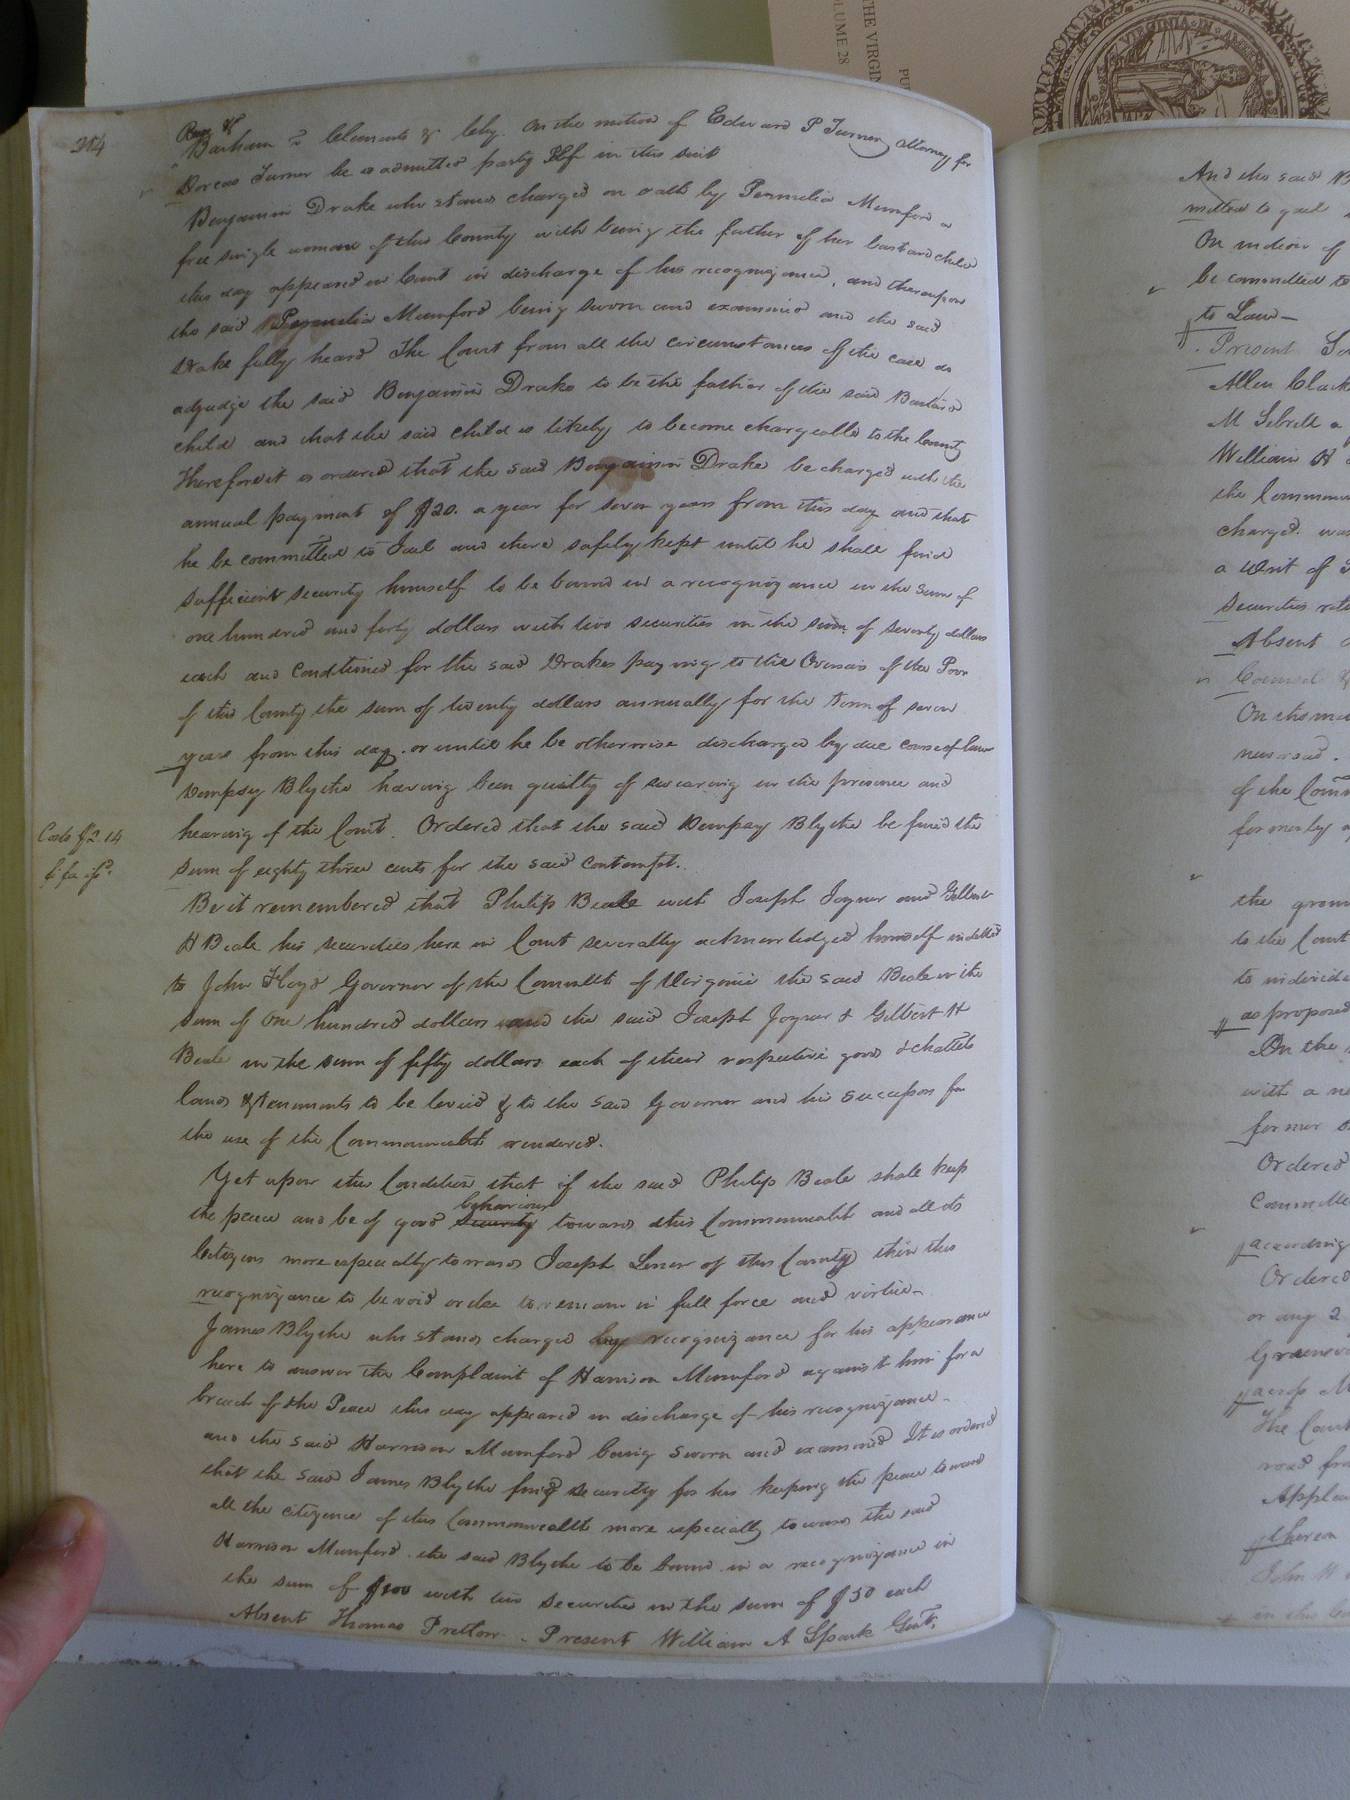 314
Barham vs Clements &
On the motion of Edward P Turner Attorney for
Dorcas Turner he is admitted party Plf in this suit
Benjamin Drake who stands charged on oath by Permelia Mumford a
free single woman of this County with being the father of her bastard child
this day appeared in Court in discharge of his recognizance, and thereupon
the said Permelia Mumford being sworn and examined and the said
Drake fully heard The Court from all the circumstances of the case do
adjudge the said Benjamin Drake to be the father of the said Bastard
child and that the said child is likely to become chargeable to the County
Therefore it is ordered that the said Benjamin Drake be charged with the
annual payment of $20. a year for seven years from this day and that
he be committed to Jail and there safely kept until he shall find
sufficient security himself to be bound in a recognizance in the sum of
one hundred and forty dollars with two securities in the sum of seventy dollars
each and Conditioned for the said Drakes paying to the Overseers of the Poor
of this County the sum of twenty dollars annually for the term of seven
years from this day. or until he be otherwise discharged by due course of law
Dempsey Blythe having been guilty of swearing in the presence and
hearing of the Court. Ordered that the said Dempsey Blythe be fined the
sum of eighty three cents for the said contempt.
Costs $2.14
fi fa
Be it remembered that Philip Beale with Joseph Joyner and Gilbert
H Beale his securities here in Court severally acknowledged himself indebted
to John Floyd Governor of the Commlth of Virginia the said Beale in the
sum of One hundred dollars and the said Joseph Joyner & Gilbert H
Beale in the sum of fifty dollars each of their respective goods & chattels
lands & tenements to be levied & to the said Governor and his successors for
the use of the Commonwealth rendered.
Yet upon this Condition that if the said Philip Beale shall keep
behaviour
the peace and be of good security towards this Commonwealth and all its
Citizens more especially towards Joseph of this County then this
recognizance to be void or else to remain in full force and virtue
James Blythe who stands charged by recognizance for his appearance
here to answer the Complaint of Harrison Mumford against him for a
breach of the Peace this day appeared in discharge of his recognizance
and the said Harrison Mumford being sworn and examined It is ordered
that the said James Blythe find security for his keeping the peace toward
all the citizens of this Commonwealth more especially towards the said
Harrison Mumford. the said Blythe to be bound in a recognizance in
the sum of $100 with two securities in the sum of $50 each
Absent Thomas Pretlow. Present William A Spark Gent.
THE VIRGIN
OLUME 28
PU
VIRGINIA
And the said B
mitted to gaol
On motion of
be committed to
to Law
Present
Allen
M Sebrell a
William H
the Common
charged. was
a Writ of
securities
Absent
Counsel
On the mo
of the Com
formerly
the groun
to the Court
to individ
as proposed
On the
with a ne
former
Ordered
Committe
according
Ordered
or any 2
Greensv
across M
The Court
road fro
thereon
John H
in this